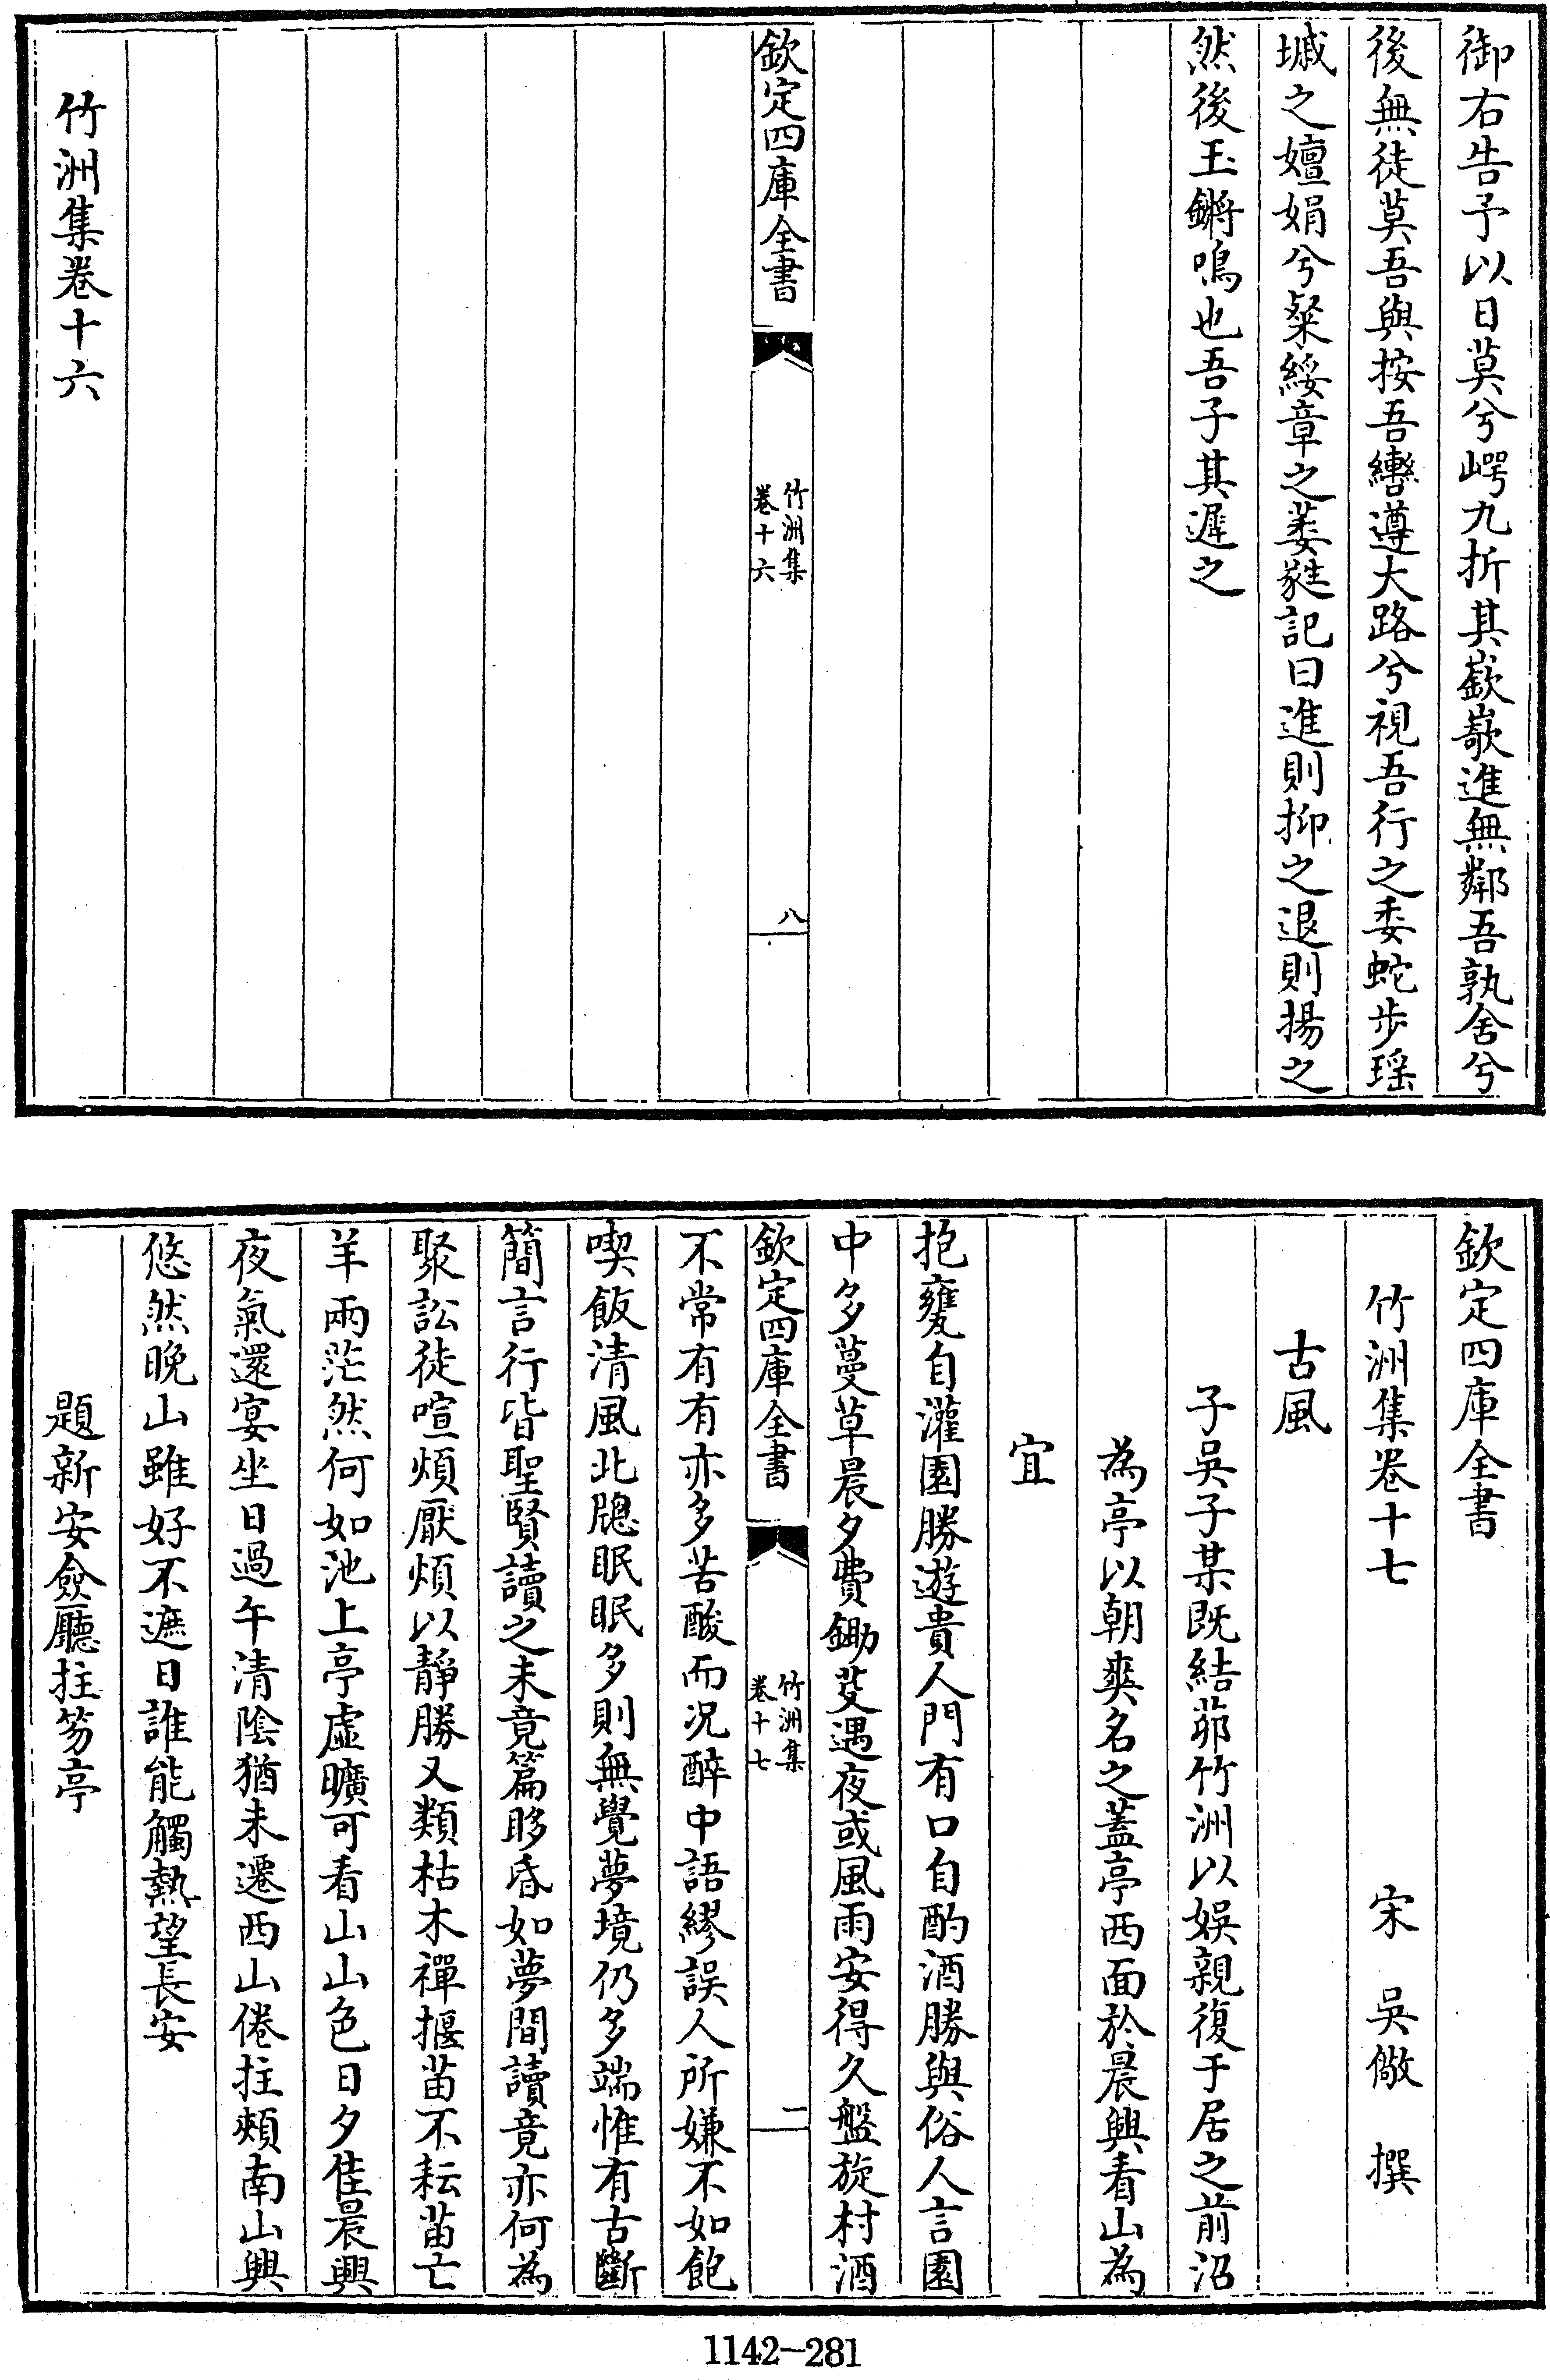 御右告予以日莫兮崿九折其嶔嶔進無鄰吾孰舍兮
後無徒莫吾與按吾轡遵大路兮視吾行之委蛇步瑶
珹之嬗娟兮粲綏章之萎蕤記曰進則抑之退則揚之
然後玉鏘鳴也吾子其遲之
欽定四庫全書
竹洲集
卷十六
八
竹洲集卷十六
欽定四庫全書
竹洲集卷十七
宋 吳儆 撰
古風
子吳子某既結茆竹洲以娛親復于居之前沼
為亭以朝爽名之蓋亭西面於晨興看山為
宜
抱甕自灌園勝遊貴人門有口自酌酒勝與俗人言園
中多蔓草晨夕費鋤芟遇夜或風雨安得久盤旋村酒
欽定四庫全書
竹洲集
卷十七
一
不常有有亦多苦酸而况醉中語繆誤人所嫌不如飽
喫飯清風北牎眠眠多則無覺夢境仍多端惟有古斷
簡言行皆聖賢讀之未竟篇眵昏如夢間讀竟亦何為
聚訟徒喧煩厭煩以静勝又類枯木禪揠苗不耘苗亡
羊兩茫然何如池上亭虚曠可看山山色日夕佳晨興
夜氣還宴坐日過午清陰猶未遷西山倦拄頰南山興
悠然晚山雖好不遮日誰能觸熱望長安
題新安僉廳拄笏亭
1142-281